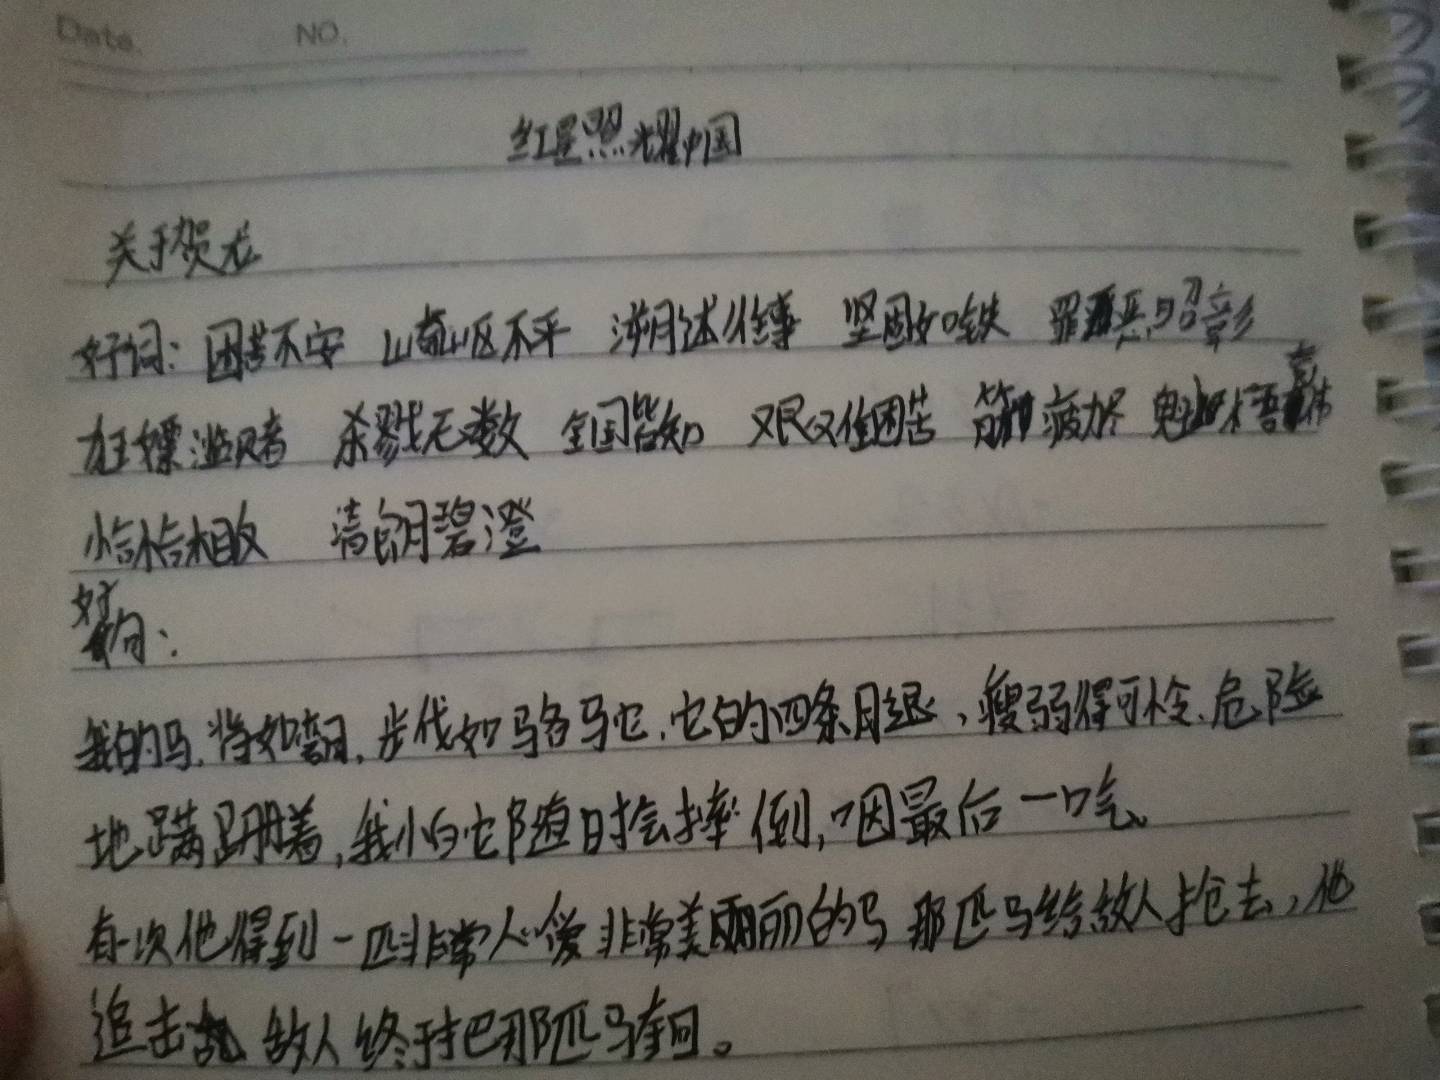 Date. NO.
红星照耀中国
关于贺龙
好词：困苦不安 崎岖不平 溯述往事 坚固如铁 罪恶昭彰
狂嫖滥赌 杀戮无数 全国皆知 艰难困苦 筋疲力尽 魁梧
恰恰相反 清朗碧澄
好句：
我的马，背如弯弓，步伐如骆驼，它的四条腿，瘦弱得可怜，危险
地蹒跚着，我怕它随时会摔倒，咽最后一口气。
有一次他得到一匹非常人爱非常美丽的马 那匹马给敌人抢去，他
追击 敌人终于把那匹马夺回。